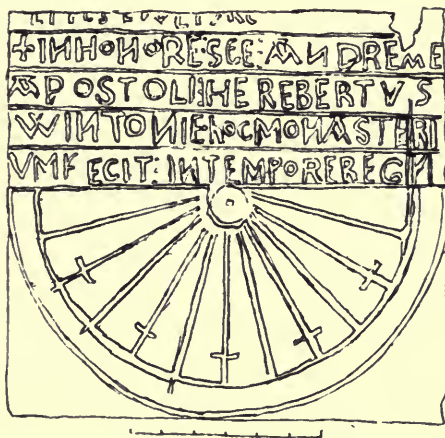 +INHONORE:SCE:ANDREME
APOSTOLI:HEREBERTVS
WINTONIEHOCMONASTERI
VMFECIT:INTEMPOREREGN